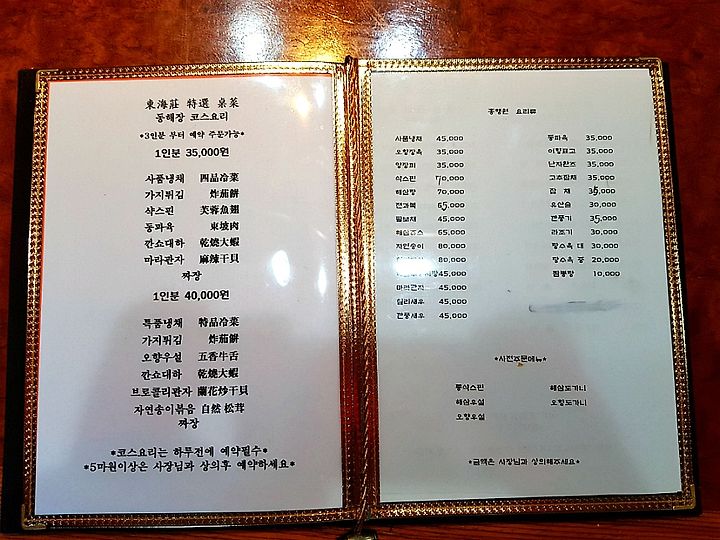 東海莊 特選 桌菜
동해장 코스요리
*3인분 부터 예약 주문가능*
1인분 35,000원
사품냉채 四品冷菜
가지튀김 炸茄餅
삭스핀 芙蓉魚翅
동파육 東坡肉
깐쇼대하 乾燒大蝦
마라관자 麻辣干貝
짜장
1인분 40,000원
특품냉채 特品冷菜
가지튀김 炸茄餅
오향우설 五香牛舌
깐쇼대하 乾燒大蝦
브로콜리관자 蘭花炒干貝
자연송이볶음 自然 松茸
짜장
*코스요리는 하루전에 예약필수*
*5만원이상은 사장님과 상의후 예약하세요*
요리류
사품냉채 45,000
오향장육 35,000
양장피 35,000
삭스핀 70,000
해삼탕 70,000
전과복 65,000
팔보채 45,000
해삼쥬스 65,000
자연송이 80,000
80,000
45,000
마라관자 45,000
칠리새우 45,000
깐풍새우 45,000
동파육 35,000
이향표고 35,000
난자완즈 35,000
고추잡채 35,000
잡 채 35,000
유산슬 30,000
깐풍기 35,000
라조기 30,000
탕수육 대 30,000
탕수육 중 20,000
짬뽕탕 10,000
*사전주문메뉴*
통삭스핀
해삼우설
오향우설
해삼도가니
오향도가니
*금액은 사장님과 상의해주세요*